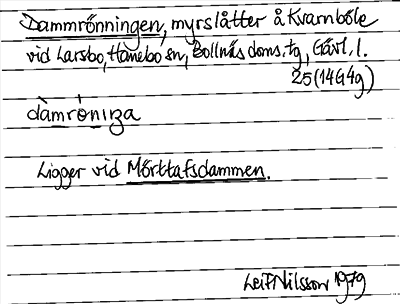 Dammrönningen, myrslåtter å Kvarnböle
vid Larsbo, Hanebo sn, Bollnäs doms. tg, Gävl. l.
25 (14G4g)
dàmrö̀niŋa
Ligger vid Mörttafsdammen.
Leif Nilsson 1979